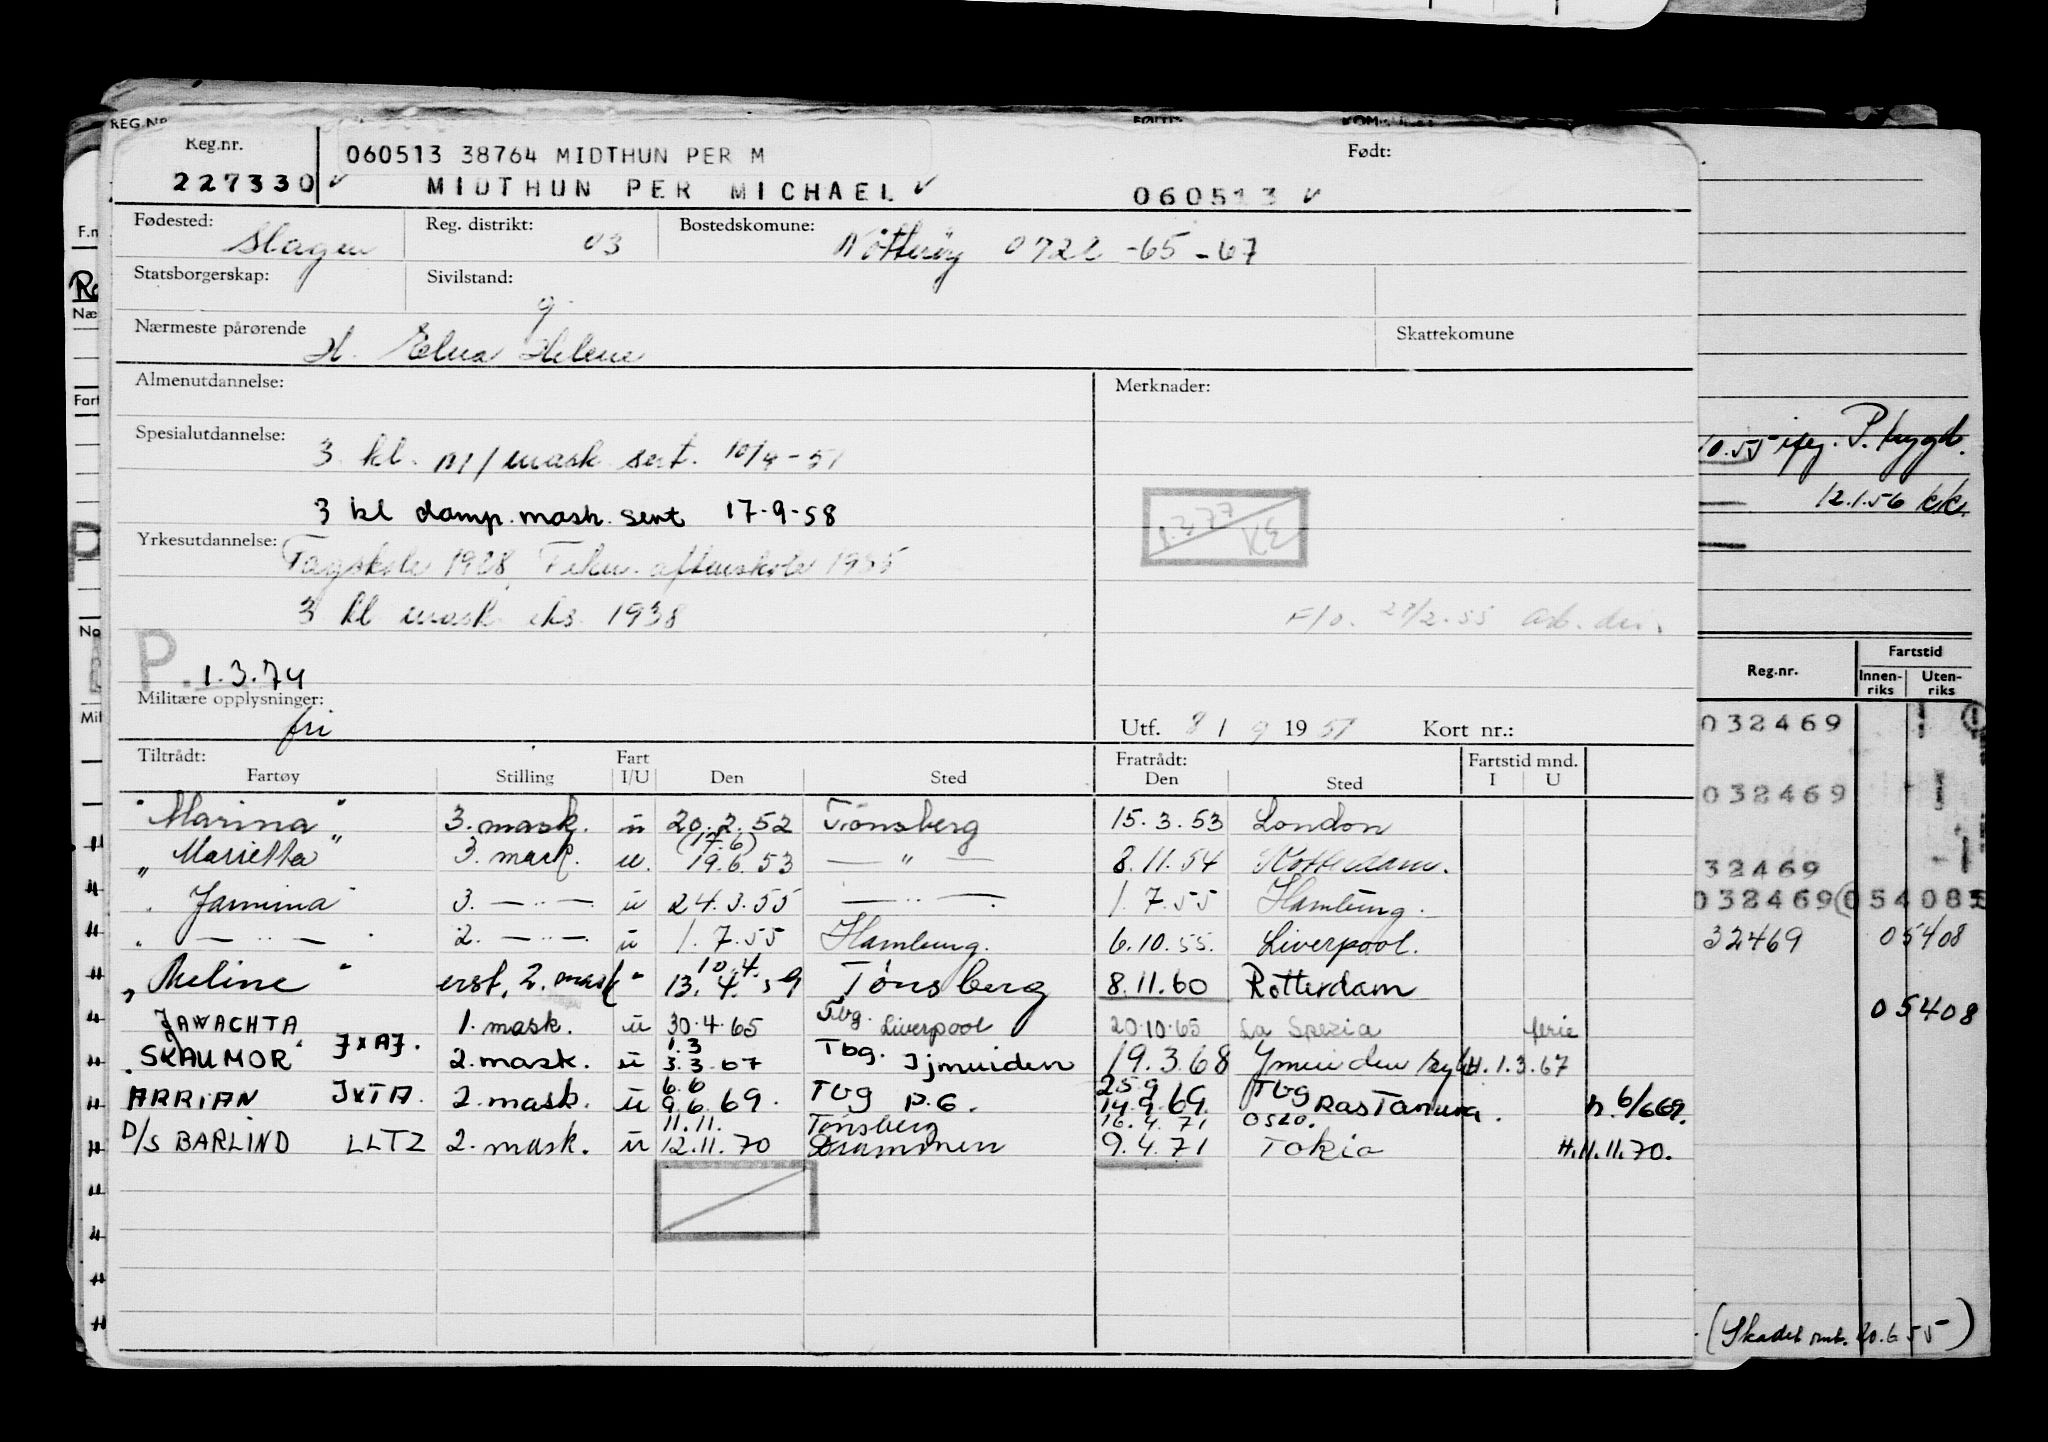 REG.NR
Reg.nr.
227330 ✓
060513 38764 MIDTHUN PER M
MIDTHUN PER MICHAEL ✓
Født:
060513 ✓
Fødested: Slagen
Reg. distrikt: 03
Bostedskomune: Nøtterøy 0722 -65-67
Statsborgerskap:
Sivilstand: g.
Nærmeste pårørende H. Elna Helene
Skattekomune
Almenutdannelse:
Merknader:
Spesialutdannelse: 3 kl. m/mask sert. 10/4-51
3 kl damp.mask.sert 17-9-58
Yrkesutdannelse: Fagskole 1928 Tekn. aftenskole 1935
3 kl mask eks. 1938
F/o. 27/2.55
P. 1.3.74
Militære opplysninger: fri
Utf. 8 / 9 1951 Kort nr.:
Tiltrådt: Fart Fratrådt: Fartstid mnd.
Fartøy Stilling I/U Den Sted Den Sted I U
"Marina" 3. mask. u 20.2.52 Tönsberg 15.3.53 London
"Marietta" 3. mask. u. (17.6) 19.6.53 — " — 8.11.54 Rotterdam.
"Jannina" 3. — " — u 24.3.55 — " — 1.7.55 Hamburg.
" — " — 2. — " — u 1.7.55 Hamburg. 6.10.55. Liverpool.
"Meline" erst. 2. mask " 10.4. 13.4.59 Tönsberg 8.11.60 Rotterdam
JAWACHTA 1. mask. u 30.4.65 Tbg. Liverpool 20.10.65 La Spezia ferie
"SKAUMOR" JXAJ. 2. mask. u 1.3 3.3.67 Tbg. Ijmuiden 19.3.68 Ymuiden syk H. 1.3.67
ARRIAN JXTA. 2. mask. u 6.6 9.6.69. Tbg P.G. 25.9 14.9.69. Tbg Ras Tanura. h. 6/6 69.
D/S BARLIND LLTZ 2. mask. u 11.11. 12.11.70 Tønsberg Drammen 16.4.71 9.4.71 Oslo. Tokio H.11.11.70.
12.1.56
Reg.nr. Fartstid
Innen-riks Uten-riks
032469
032469
32469
032469 (05408
32469 05408
05408
(Skadet 20.6.55)